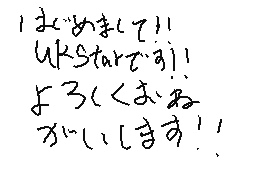 はじめまして!!
UKStarです!!
よろしくおね
がいします!!